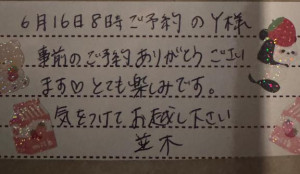 6月16日8時ご予約のY様
事前のご予約ありがとうござい
ます♡とても楽しみです。
気をつけてお越し下さい
並木